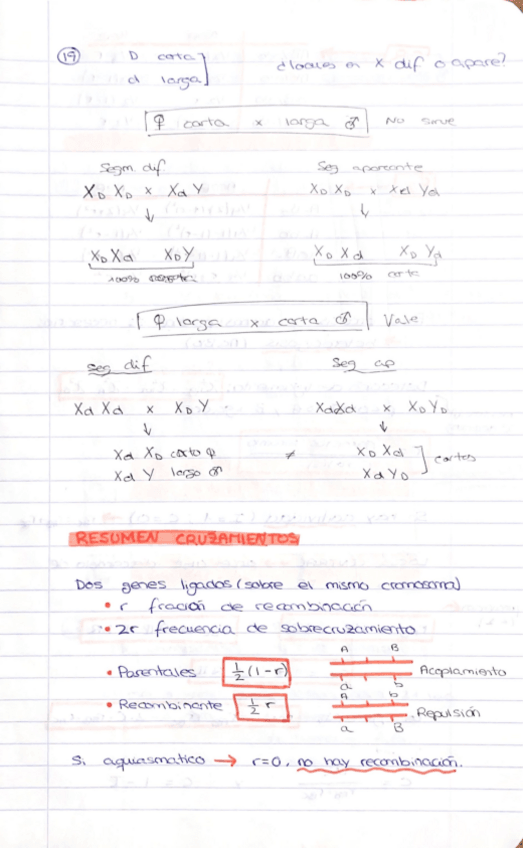 19 D corta
d larga
¿locus en X dif o apare?
♀ corta x larga ♂ No sirve
Segm dif Seg apareante
X_D X_D x X_d Y X_D X_D x X_d Y_d
↓ ↓
X_D X_d X_D Y X_D X_d X_D Y_d
100% 100% corta
♀ larga x corta ♂ Vale
seg dif Seg ap
X_d X_d x X_D Y X_d X_d x X_D Y_D
↓ ↓
X_d X_D corta ♀ ≠ X_D X_d
X_d Y larga ♂ X_d Y_D
cortas
RESUMEN CRUZAMIENTOS
Dos genes ligados (sobre el mismo cromosoma)
• r fracción de recombinación
• 2r frecuencia de sobrecruzamiento
• Parentales 1/2 (1-r) A B Acoplamiento
a b
• Recombinante 1/2 r A b Repulsión
a B
Si aquiasmatico → r=0, no hay recombinación.